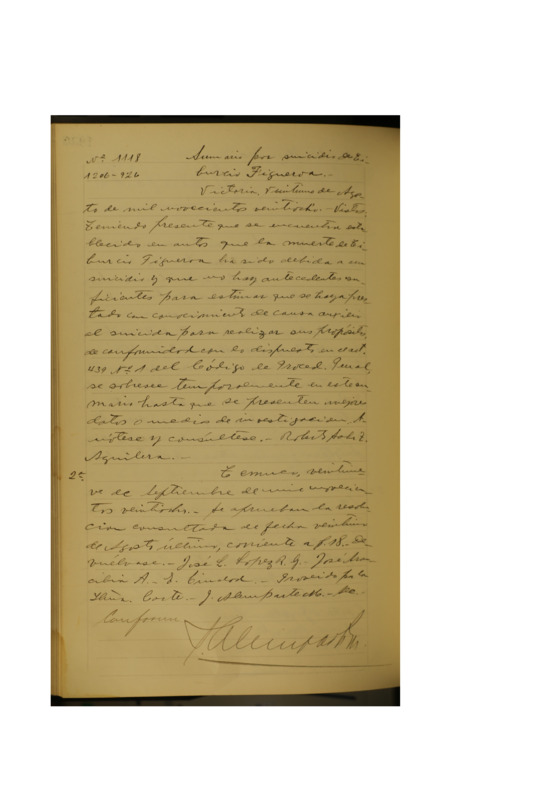 Nº 1118 Sumario por suicidio de Ti-
1206-926 burcio Figueroa.-
Victoria, veintiuno de Agos-
to de mil novecientos veintiocho.- Vistos:
Teniendo presente que se encuentra esta-
blecido en autos que la muerte de Ti-
burcio Figueroa ha sido debida a un
suicidio y que no hay antecedentes su-
ficientes para estimar que se haya pres-
tado con conocimiento de causa auxilio
al suicida para realizar sus propósitos,
de conformidad con lo dispuesto en el art.
439 Nº 1 del Código de Proced. Penal,
se sobresee temporalmente en este su-
mario hasta que se presenten mejores
datos o medios de investigación. A-
nótese y consúltese.- Robert
Aguilera.-
2ª Temuco, veintinue-
ve de Septiembre de mil novecien-
tos veintiocho.- Se aprueba la resolu-
cion consultada de fecha veintiuno
de Agosto último, corriente a f. 18. De-
vuélvase.- José L. López José
A. Proveido por la
Iltma. Corte.- J. Alemparte M.-
Conforme
J. Alemparte M.